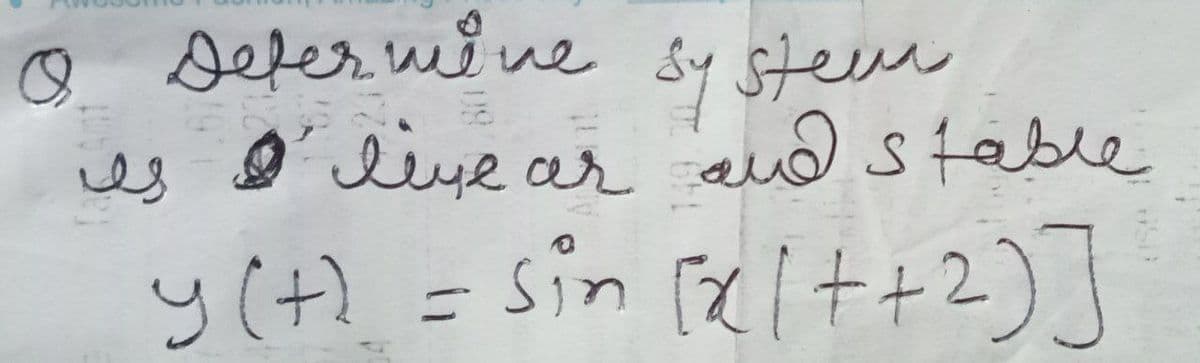 Q Determine system
is linear and stable
y(t) = sin [x(t+2)]